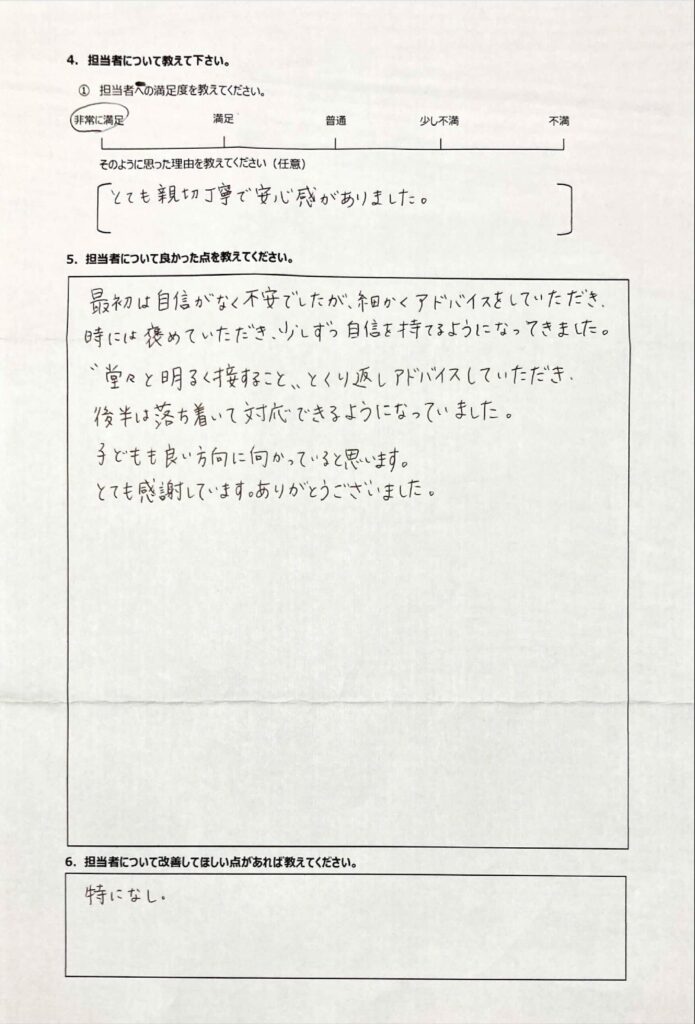 4．担当者について教えて下さい。
① 担当者への満足度を教えてください。
非常に満足 満足 普通 少し不満 不満
そのように思った理由を教えてください（任意）
とても親切丁寧で安心感がありました。
5．担当者について良かった点を教えてください。
最初は自信がなく不安でしたが、細かくアドバイスをしていただき、
時には褒めていただき、少しずつ自信を持てるようになってきました。
〝堂々と明るく接すること〟とくり返しアドバイスしていただき、
後半は落ち着いて対応できるようになっていました。
子どもも良い方向に向かっていると思います。
とても感謝しています。ありがとうございました。
6．担当者について改善してほしい点があれば教えてください。
特になし。